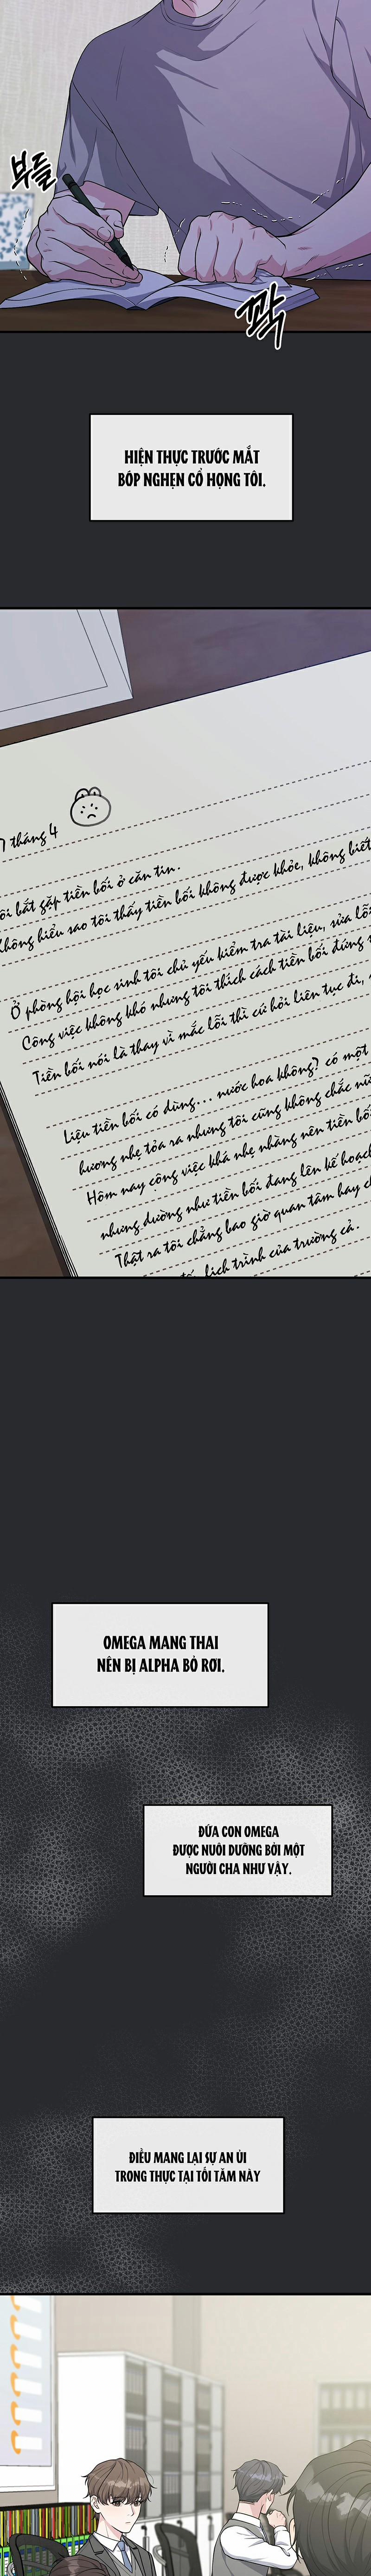 부들
꽉
HIỆN THỰC TRƯỚC MẮT
BÓP NGHẸN CỔ HỌNG TÔI.
7 tháng 4
ôi bắt gặp tiền bối ở căn tin.
Không hiểu sao tôi thấy tiền bối không được khỏe, không biết
Ở phòng hội học sinh tôi chủ yếu kiểm tra tài liệu, sửa lỗi
Công việc không khó nhưng tôi thích cách tiền bối đứng
Tiền bối nói là thay vì mắc lỗi thì cứ hỏi liên tục đi,
Liệu tiền bối có dùng... nước hoa không? có một
hương nhẹ tỏa ra nhưng tôi cũng không chắc nữ
Hôm nay công việc khá nhẹ nhàng nên tiền bố
nhưng dường như tiền bối đang lên kế hoạch
Thật ra tôi chẳng bao giờ quan tâm hay ch
lịch trình của trường cả.
OMEGA MANG THAI
NÊN BỊ ALPHA BỎ RƠI.
ĐỨA CON OMEGA
ĐƯỢC NUÔI DƯỠNG BỞI MỘT
NGƯỜI CHA NHƯ VẬY.
ĐIỀU MANG LẠI SỰ AN ỦI
TRONG THỰC TẠI TỐI TĂM NÀY